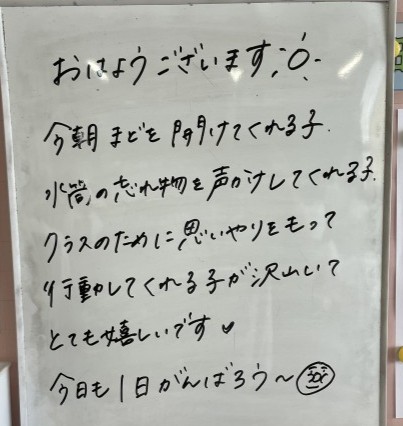 おはようございます
今朝まどを開けてくれる子
水筒の忘れ物を声かけしてくれる子
クラスのために思いやりをもって
行動してくれる子が沢山いて
とても嬉しいです♥
今日も1日がんばろう〜